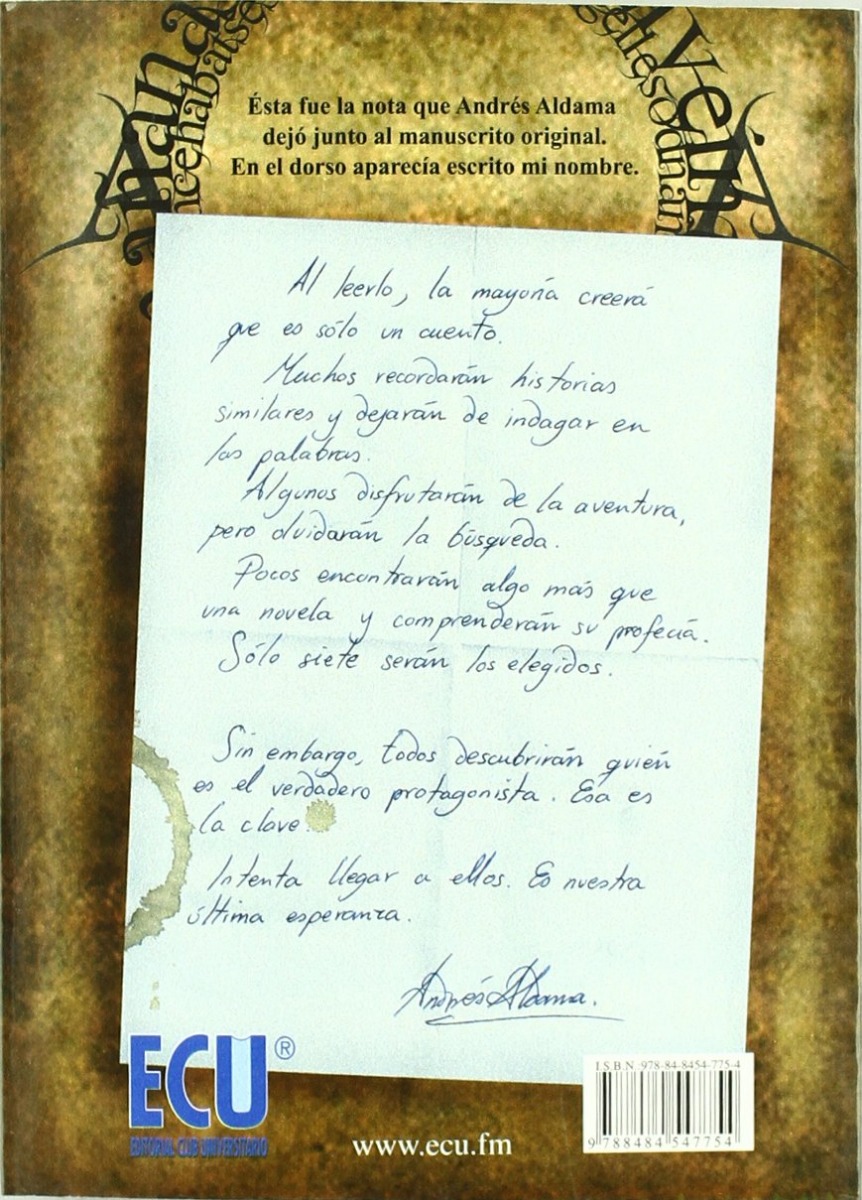 Ésta fue la nota que Andrés Aldama
dejó junto al manuscrito original.
En el dorso aparecía escrito mi nombre.
Al leerlo, la mayoría creerá
que es sólo un cuento.
Muchos recordarán historias
similares y dejarán de indagar en
las palabras.
Algunos disfrutarán de la aventura,
pero olvidarán la búsqueda.
Pocos encontrarán algo más que
una novela y comprenderán su profecía.
Sólo siete serán los elegidos.
Sin embargo, todos descubrirán quién
es el verdadero protagonista. Esa es
la clave.
Intenta llegar a ellos. Es nuestra
última esperanza.
Andrés Aldama.
ECU®
EDITORIAL CLUB UNIVERSITARIO
www.ecu.fm
I.S.B.N.:978-84-8454-775-4
9 788484 547754